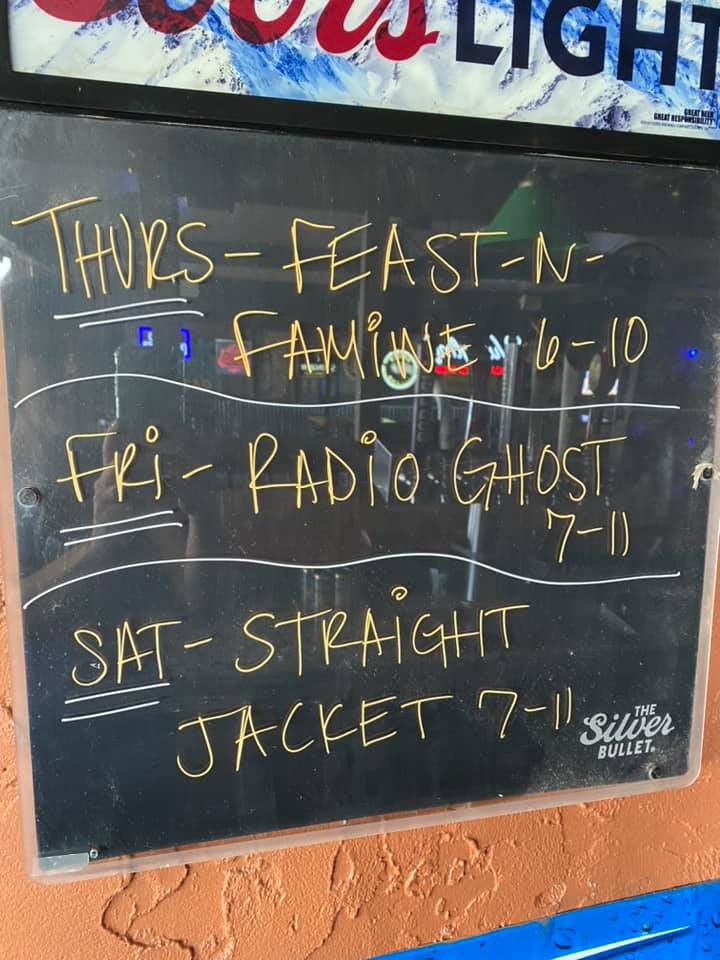 Coors LIGHT
GREAT BEER
GREAT RESPONSIBILITY
THURS- FEAST-N-
FAMiNE 6-10
FRi- RADiO GHOST
7-11
SAT- STRAiGHT
JACKET 7-11
THE
Silver
BULLET.